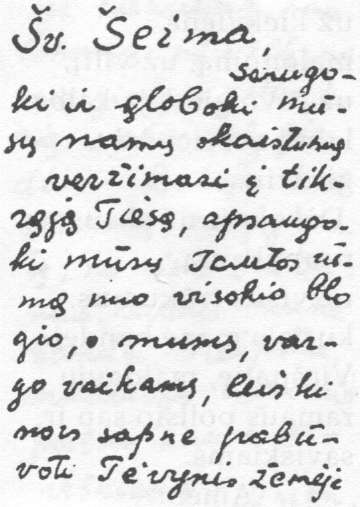 Šv. Šeima,
saugo-
ki ir globoki mū-
sų namų skaistumą
veržimąsi į tik-
rąją Tiesą, apsaugo-
ki mūsų Tautos ūs-
mą nuo visokio blo
gio o mums, var-
go vaikams, leiski
nors sapne pabū-
voti Tėvynės žemėje